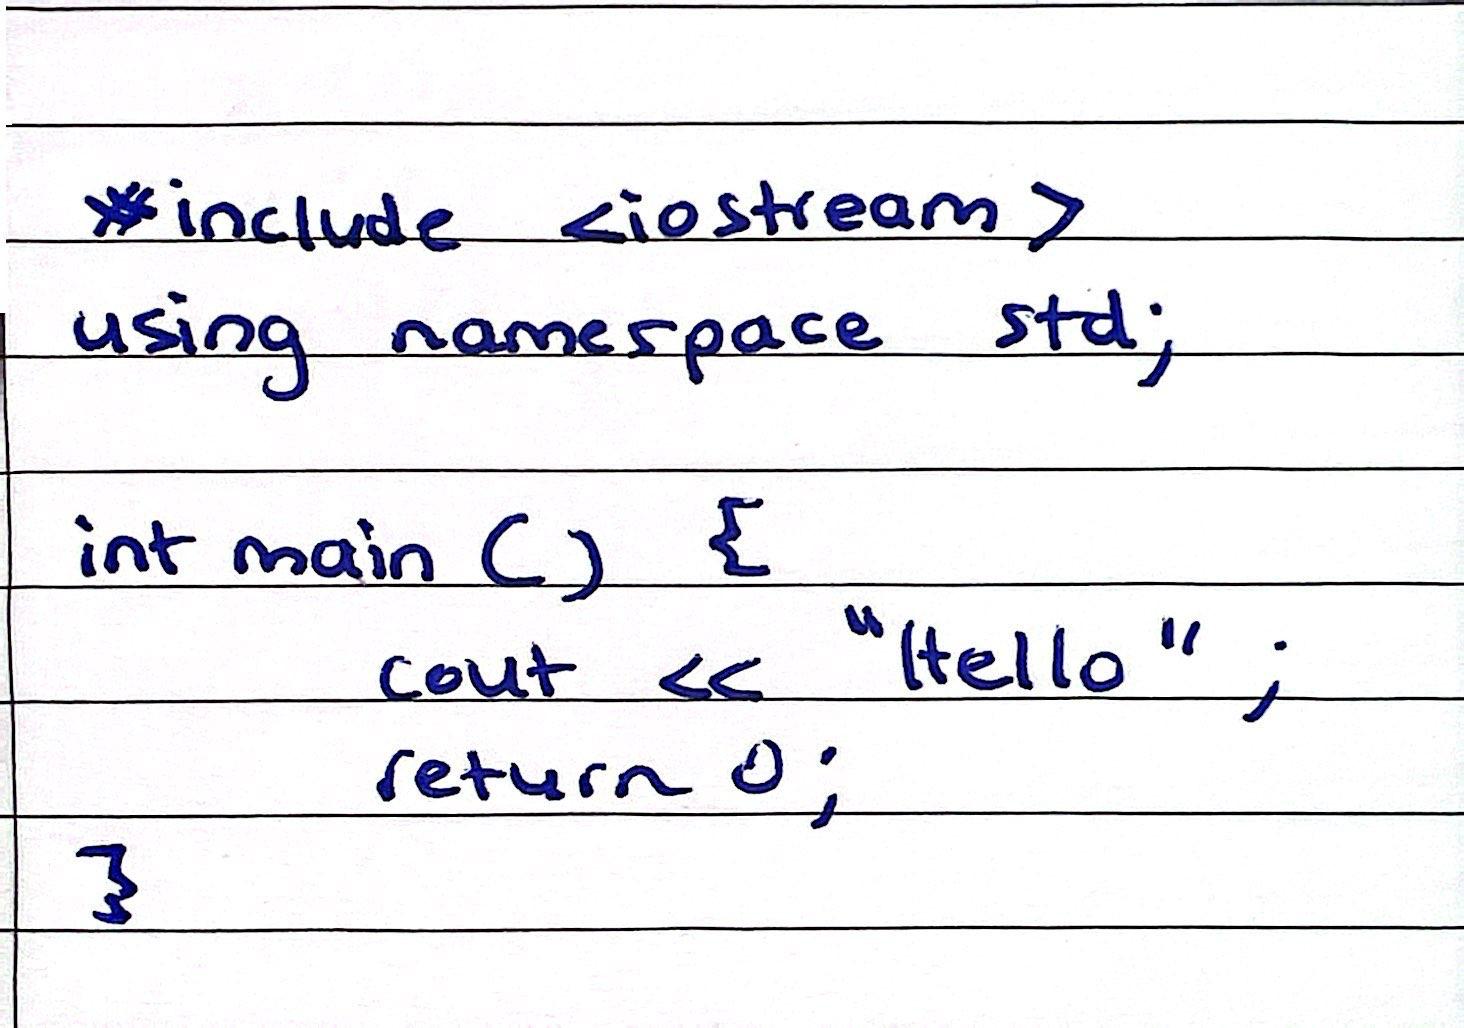 #include <iostream>
using namespace std;
int main () {
cout << "Hello" ;
return 0;
}